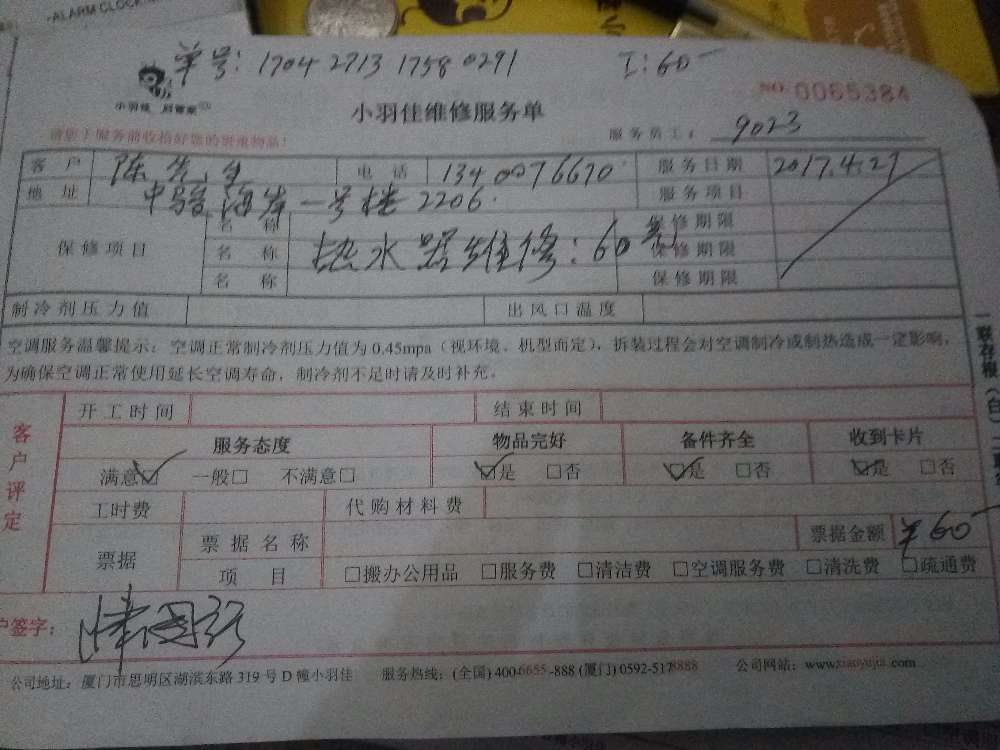 -ALARM CLOCK
单号: 1704 2713 1758 0291 I:60-
小羽佳 好管家 NO. 0065384
小羽佳维修服务单
请您于服务前收拾好您的贵重物品! 服务员工: 9023
客户 陈先生 电话 13400776670 服务日期 2017.4.27
地址 中骏海岸一号楼2206. 服务项目
保修项目 名称 保修期限
名称 热水器维修:60元 保修期限
名称 保修期限
制冷剂压力值 出风口温度
空调服务温馨提示: 空调正常制冷剂压力值为0.45mpa(视环境、机型而定), 拆装过程会对空调制冷或制热造成一定影响,
为确保空调正常使用延长空调寿命, 制冷剂不足时请及时补充。
客户评定
开工时间 结束时间
服务态度 物品完好 备件齐全 收到卡片
满意☑ 一般□ 不满意□ ☑是 □否 ☑是 □否 ☑是 □否
工时费 代购材料费
票据 票据名称 票据金额 ¥60-
项目 □搬办公用品 □服务费 □清洁费 □空调服务费 □清洗费 □疏通费
户签字:
公司地址: 厦门市思明区湖滨东路319号D幢小羽佳 服务热线: (全国) 400-6655-888 (厦门) 0592-5178888 公司网站: www.xiaoyujia.com
一联存根(白)